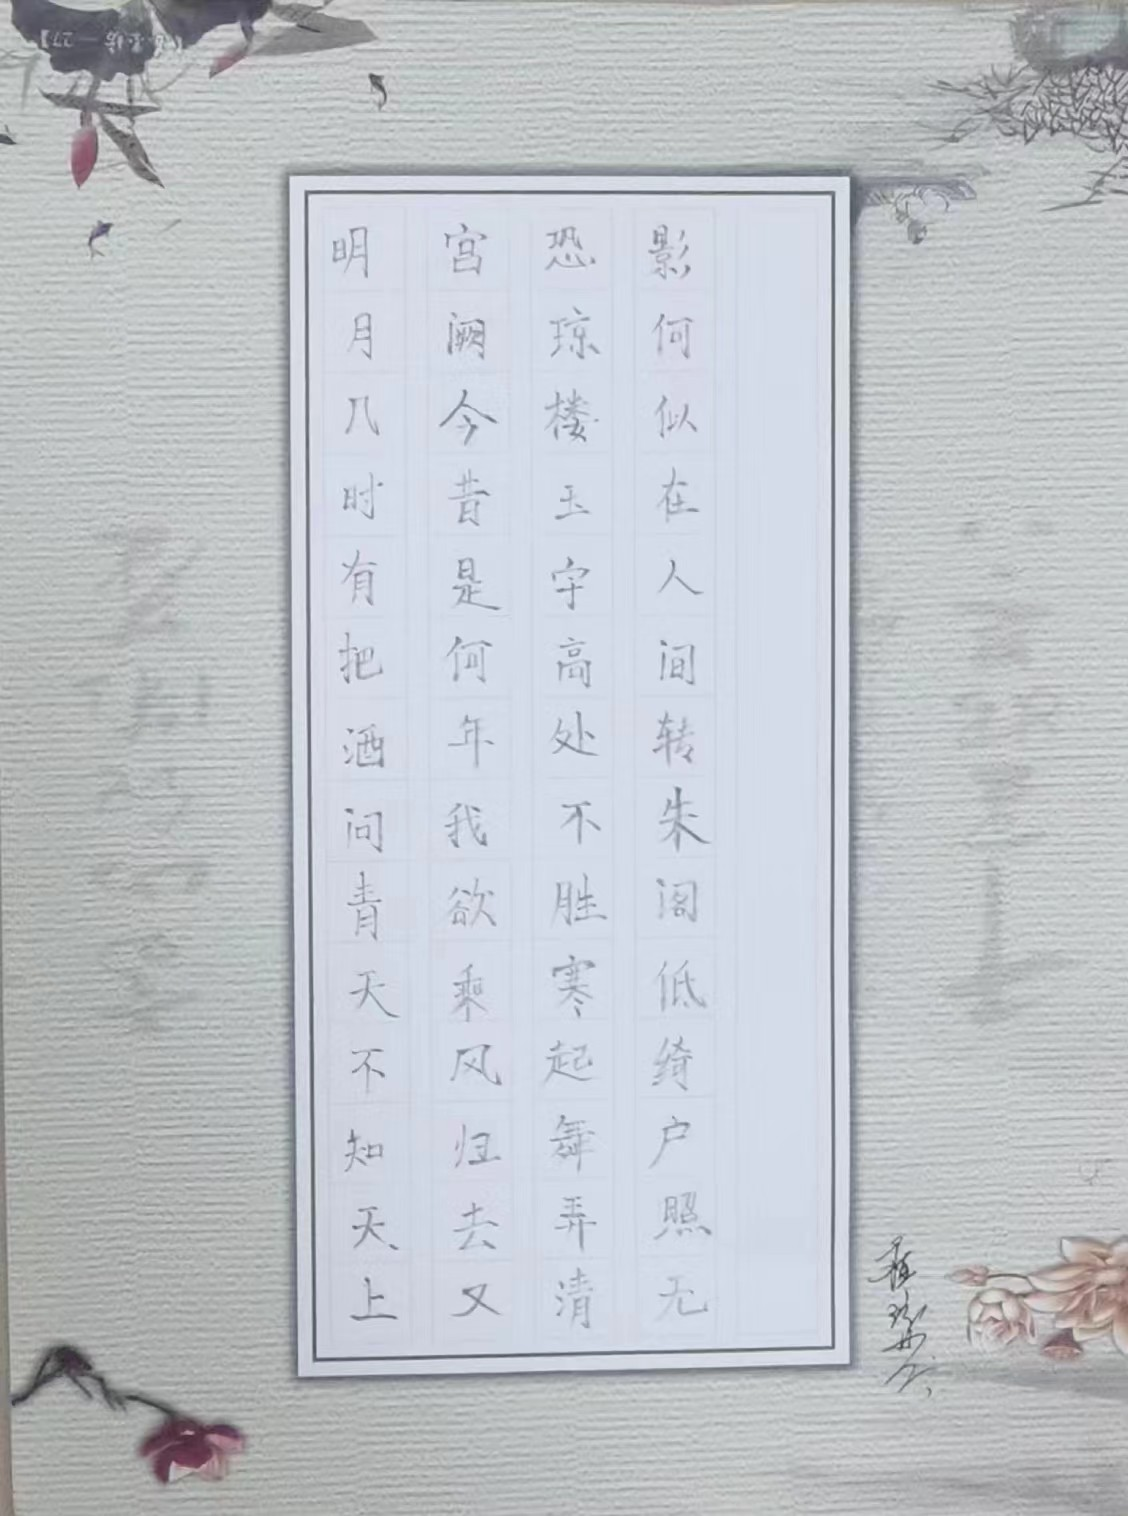 明月几时有把酒问青天不知天上
宫阙今昔是何年我欲乘风归去又
恐琼楼玉宇高处不胜寒起舞弄清
影何似在人间转朱阁低绮户照无